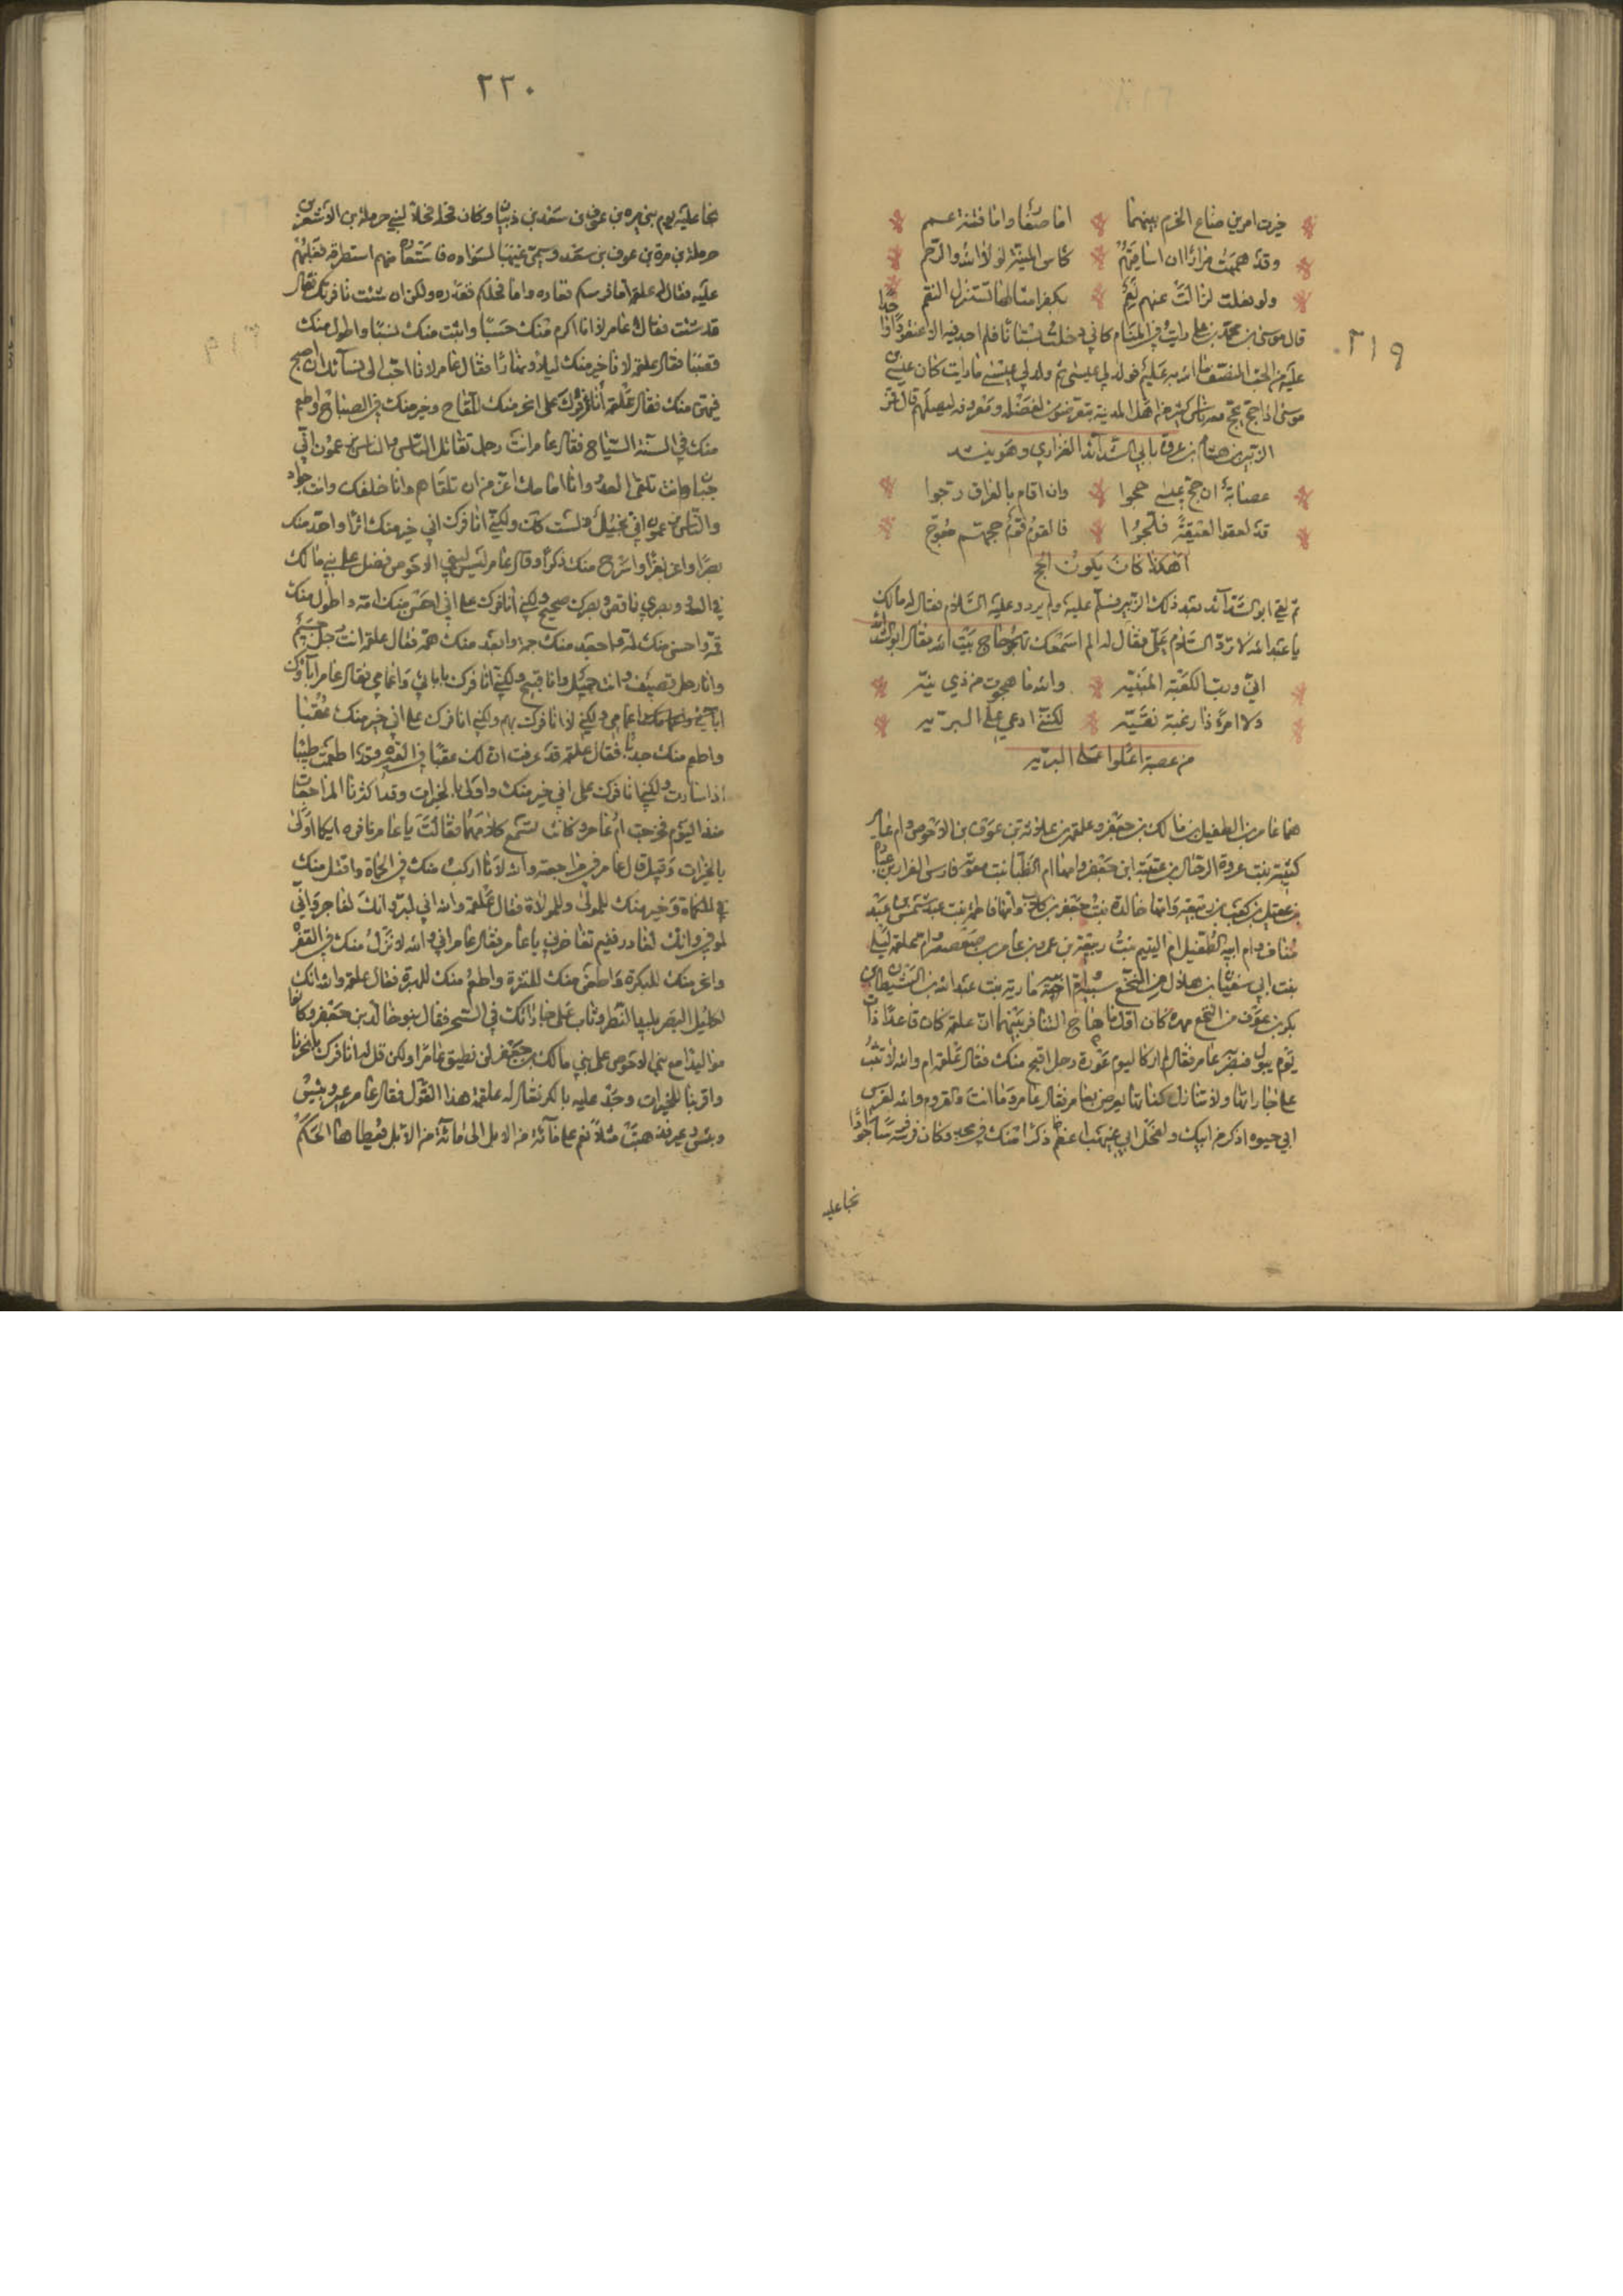 ٢١٩
خيرت امرين ضاع الحزم بينهما اما صغار واما فتنة عمم
وقد هممت مرارا ان اساقيهم كاس المنية لولا الله والرحم
ولو فعلت لزالت عنهم نعم بكفر امثالها تستنزل النقم
قال موسى بن محمد بن علي رايت في المنام كاني دخلت بستانا فلم اجد فيه الا عنقودا واحدا
عليه من الحب المتصف ما الله به عليم فولد لي عيسى ثم ولد لي عيسى ما رايت كان عيسى بن
موسى اذا حج يحج معه ناس كثير من اهل المدينة يتعرضون لفضله ومعروفه ليصلهم قال فمر
الزبير بن هشام بن عروة بابي الشدائد الفزاري وهو ينشد
عصابة ان حج عيسى حجوا وان اقام بالعراق دجوا
قد لعقوا لعيقة فلجوا فالقوم قوم حجهم معوج
اهكذا كان يكون الحج
ثم لقي ابو الشدائد بعد ذلك الزبير فسلم عليه ولم يردد عليه السلام فقال له مالك
يا عبد الله لا ترد السلام علي فقال له الم اسمعك تهجو حاج بيت الله فقال ابو الشدائد
اني ورب الكعبة المبنية والله ما هجوت من ذي نية
ولا امرء ذا رغبة نقية لكنني ادعي على البرية
من عصبة اغلوا على البرية
هما عامر بن الطفيل بن مالك بن جعفر وعلقمة بن علاثة بن عوف بن الاحوص وام عامر
كبشة بنت عروة الرحال بن عتبة ابن جعفر وامها ام الظبا بنت معوية فارس الهرار بن عبادة
بن عقيل بن كعب بن ربيعة وامها خالدة بنت جعفر بن كلاب وامها فاطمة بنت عبد شمس بن عبد
مناف وام ابيه الطفيل ام البنين بنت ربيعة بن عمرو بن عامر بن صعصعة وام علقمة ليلى
بنت ابي سفيان بن هلال من النخع سبية وام ابيه مارية بنت عبد الله بن الشيطان بن
بكر بن عوف من النخع مهيرة كان اول ما هاج النفار بينهما ان علقمة كان قاعدا ذات
يوم يبول فبصر عامر فقال لم ار كاليوم عورة رجل اقبح منك فقال علقمة ام والله لا تثب
على جاراتها ولا تنازل كناتها يعرض بعامر فقال عامر وما انت والقروم والله لفرس
ابي حيوه اذكر من ابيك ولفحل ابي غيهب اعظم ذكرا منك في نجد وكان فرسه جوادا
نجا عليه
٢٢٠
نجا عليه يوم بني مرة بن عوف بن سعد بن ذبيان وكان فحله فحلا لبني حرملة بن الاشعر بن
حرملة بن مرة بن عوف بن سعد وسمي غيهبا لسواده فاستعاره منهم استطرقه فغلبهم
عليه فقال له علقمة اما فرسكم فعارة واما فحلكم فغدرة ولكن ان شئت نافرتك فقال
قد شئت فقال عامر لانا اكرم منك حسبا واثبت منك نسبا واطول منك
قصبا فقال علقمة لانا خير منك ليلا ونهارا فقال عامر لانا احب الى نسائك ان اصبح
فيهن منك فقال علقمة انافرك على انحر منك اللقاح وخير منك في الصباح واطعم
منك في السنة الشياح فقال عامر انت رجل تقاتل الناس والناس يزعمون اني
جبان وانت تلقى العدو وانا امامك اعز من ان تلقاهم وانا خلفك وانت جواد
والناس يزعمون اني بخيل ولست كذلك ولكني انافرك اني خير منك اثرا واحد منك
بصرا واعز نفرا واسرح منك ذكرا وقال عامر ليس لبني الاحوص فضل على بني مالك
في العدد وبصري ناقص وبصرك صحيح ولكني انافرك على اني احسن منك امة واطول منك
قمة واحسن منك لمة واجعد منك جمة وابعد منك همة فقال علقمة انت رجل جسيم
وانا رجل قضيف وانت جميل وانا قبيح ولكني انافرك بابائي واعمامي فقال عامر اباؤك
اعمامي ولكني لا انافرك بهم ولكني انافرك على اني خير منك عقبا
واطعم منك جدبا فقال علقمة قد عرفت ان لك عقبا في العشيرة وقد اطعمت طيبا
اذا سارت ولكني انافرك على اني خير منك واولى بالخيرات وقد اكثرنا المراجعات
منذ اليوم فخرجت ام عامر وكانت تسمع كلامهما فقالت يا عامر نافره ايكما اولى
بالخيرات وقيل قال عامر في مراجعته والله لانا اركب منك في الحماة واقتل منك
في الكماة وخير منك للمولى وللمولاة فقال علقمة والله اني لبر وانك لفاجر واني
لوفي وانك لغادر ففيم تفاخرني يا عامر فقال عامر اني والله لانزل منك في القفرة
وانحر منك للبكرة واطعن منك للثغرة واطعم منك للهبرة فقال علقمة والله انك
لكليل البصر وثاب على جاراتك في السحر فقال بنو خالد بن جعفر وكانوا
مع بني الاحوص على بني مالك بن جعفر لن تطيق عامرا ولكن قل له انافرك بخيرنا
واقربنا للخيرات وخذ عليه بالكبر فقال له علقمة هذا القول فقال عامر عير وتيس
وتيس وعير فذهبت مثلا نعم على مائة من الابل الى مائة من الابل يعطاها الحكم